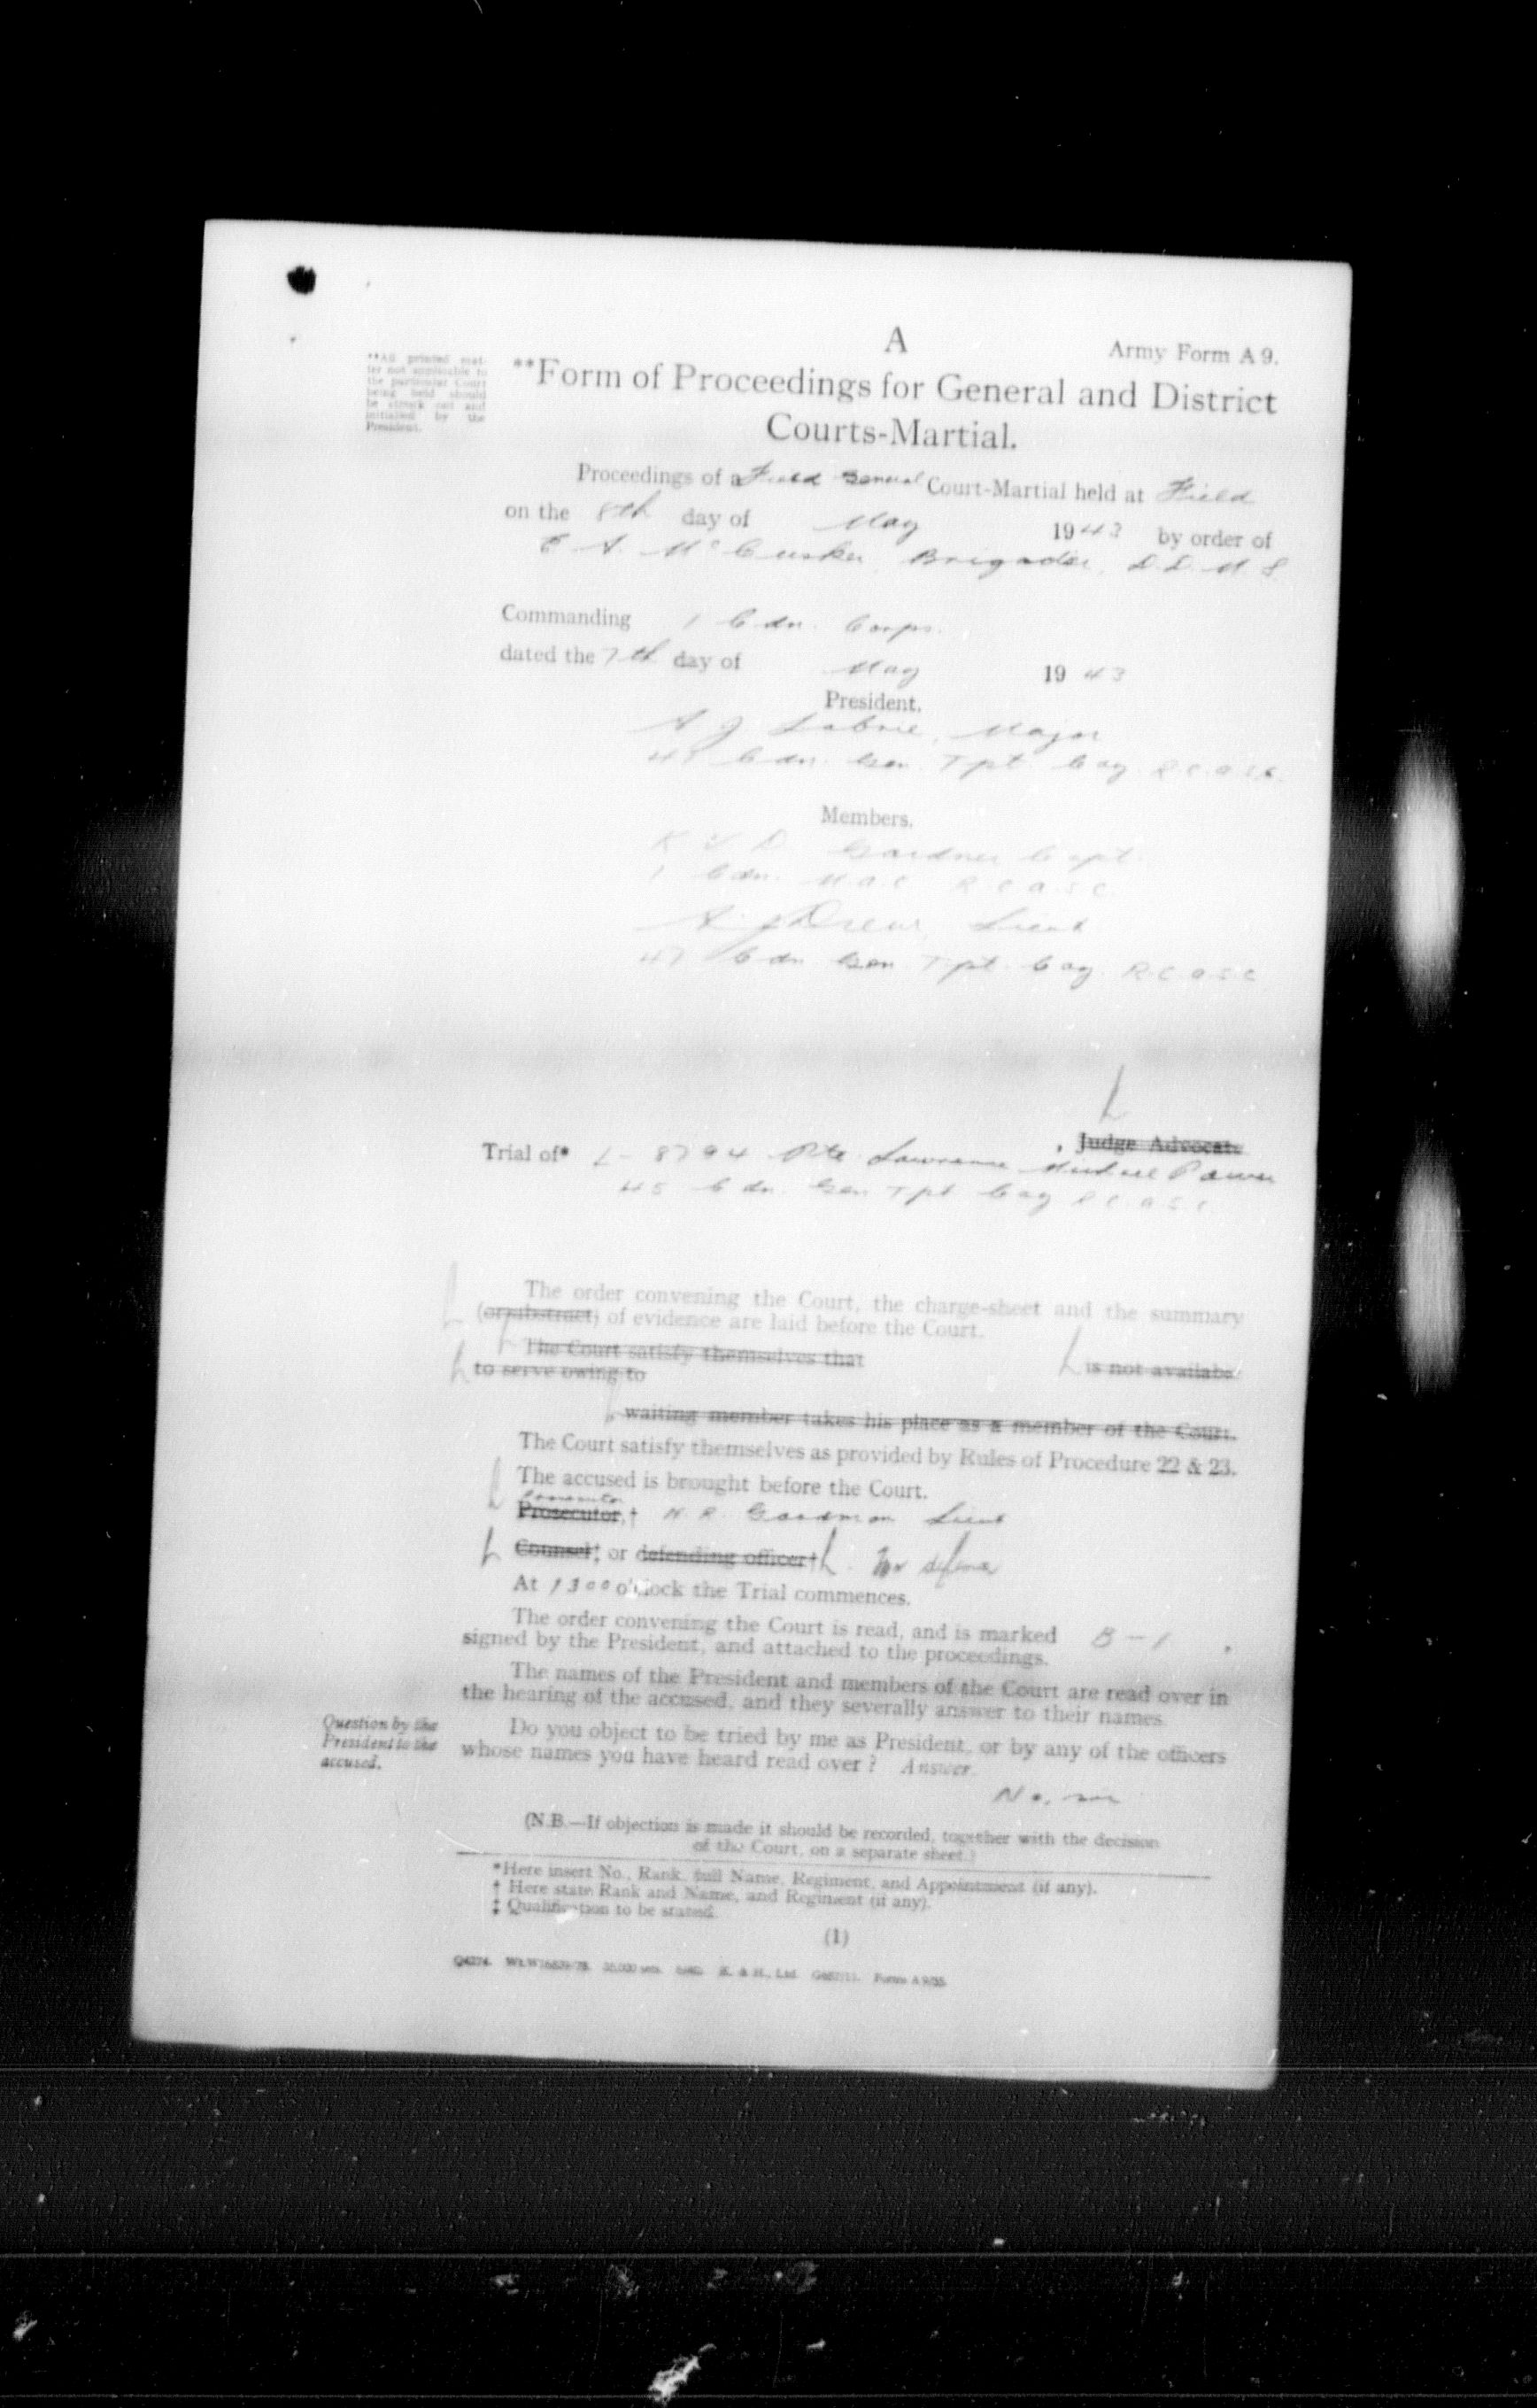 A
Army Form A 9.
**All printed mat-
ter not applicable to
the particular Court
being held should
be struck out and
initialled by the
President.
**Form of Proceedings for General and District
Courts-Martial.
Proceedings of a Field General Court-Martial held at Field
on the 8th day of May 1943 by order of
E A. McCusker, Brigadier, D.D.M.S
Commanding 1 Cdn. Corps.
dated the 7th day of May 1943
President.
A J Labrie, Major
Cdn. Gen. Tpt Coy R.C.A.S.C.
Members.
Gardner Capt.
1 Cdn. M.A.C. R.C.A.S.C.
Drew, Lieut
47 Cdn Gen Tpt. Coy R.C.A.S.C
, Judge Advocate
Trial of* L-8794 Pte. Lawrence Michael Power
45 Cdn. Gen Tpt Coy R.C.A.S.C
The order convening the Court, the charge-sheet and the summary
(or abstract) of evidence are laid before the Court.
The Court satisfy themselves that is not available
to serve owing to
, waiting member takes his place as a member of the Court.
The Court satisfy themselves as provided by Rules of Procedure 22 & 23.
The accused is brought before the Court.
Prosecutor
Prosecutor,† Goodman Lieut
Counsel‡ or defending officer† for defence
At 1300 o'clock the Trial commences.
The order convening the Court is read, and is marked B-1 ,
signed by the President, and attached to the proceedings.
The names of the President and members of the Court are read over in
the hearing of the accused, and they severally answer to their names.
Question by the
President to the
accused.
Do you object to be tried by me as President, or by any of the officers
whose names you have heard read over ? Answer.
No, sir
(N.B.—If objection is made it should be recorded, together with the decision
of the Court, on a separate sheet.)
*Here insert No., Rank, full Name, Regiment, and Appointment (if any).
† Here state Rank and Name, and Regiment (if any).
‡ Qualification to be stated.
(1)
K. & H., Ltd. Forms A 9/35